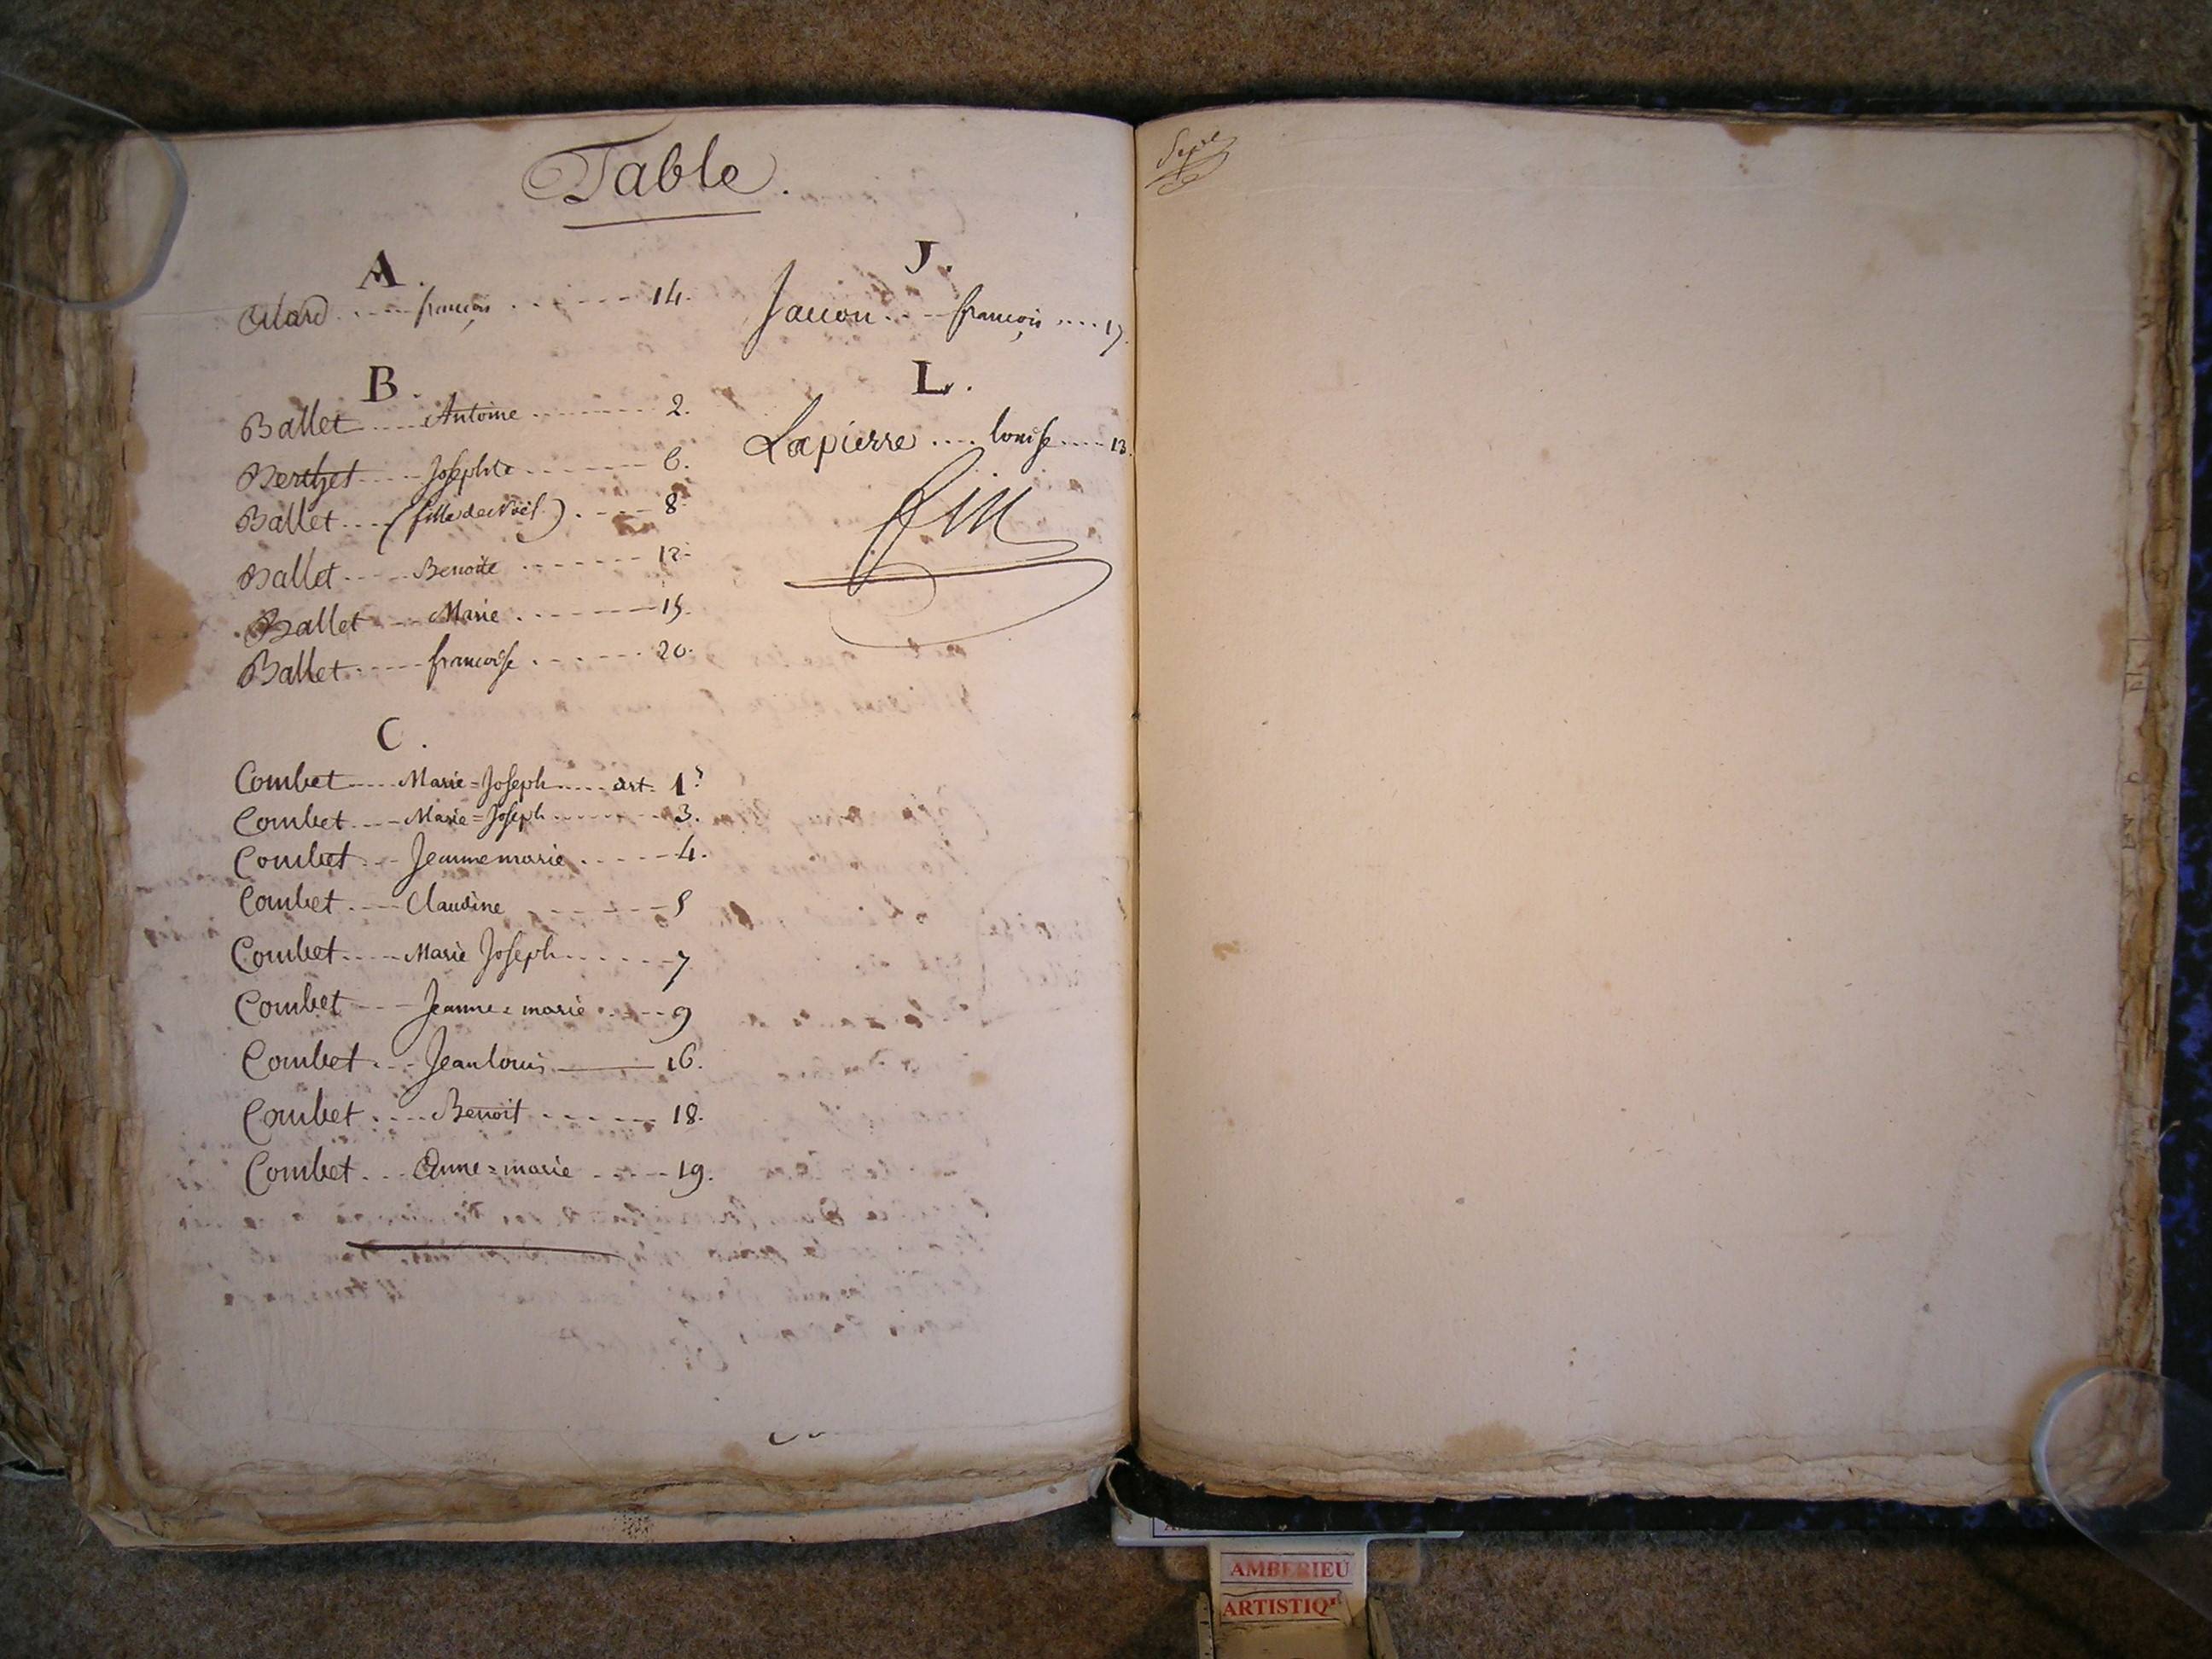 Table.
A.
Alard .... françois ...... 14.
B.
Ballet .... Antoine ........ 2.
Berthet .... Josephte ....... 6.
Ballet .... (fille de Noël) .... 8
Ballet .... Benoite ....... 12.
Ballet .... Marie ....... 15.
Ballet .... francoise ...... 20.
C.
Combet .... Marie=Joseph .... art. 1r
Combet .... Marie=Joseph ....... 3.
Combet ... Jeanne marie ..... 4.
Combet ... Claudine ..... 5
Combet .... Marie Joseph ...... 7
Combet ... Jeanne=marie .... 9
Combet ... Jean louis ___ 16.
Combet .... Benoit ...... 18.
Combet ... Anne=marie .... 19.
J.
françois .... 17.
L.
Lapierre .... louise .... 13.
fin
AMBERIEU
ARTISTIQ